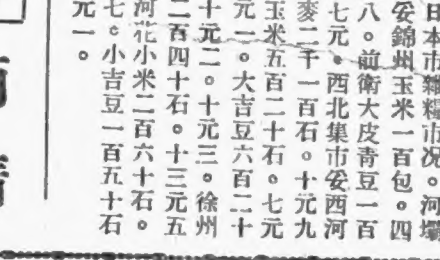 日本市雜糧市况。河壩
妥錦州玉米一百包。四
八。前衛大皮靑豆一百
七元。西北集市妥西河
麥二千一百石。十元九
玉米五百二十石。七元
元一。大吉豆六百二十
十元二。十元三。徐州
二百四十石。十三元五
河花小米二百六十石。
七。小吉豆一百五十石
元一。